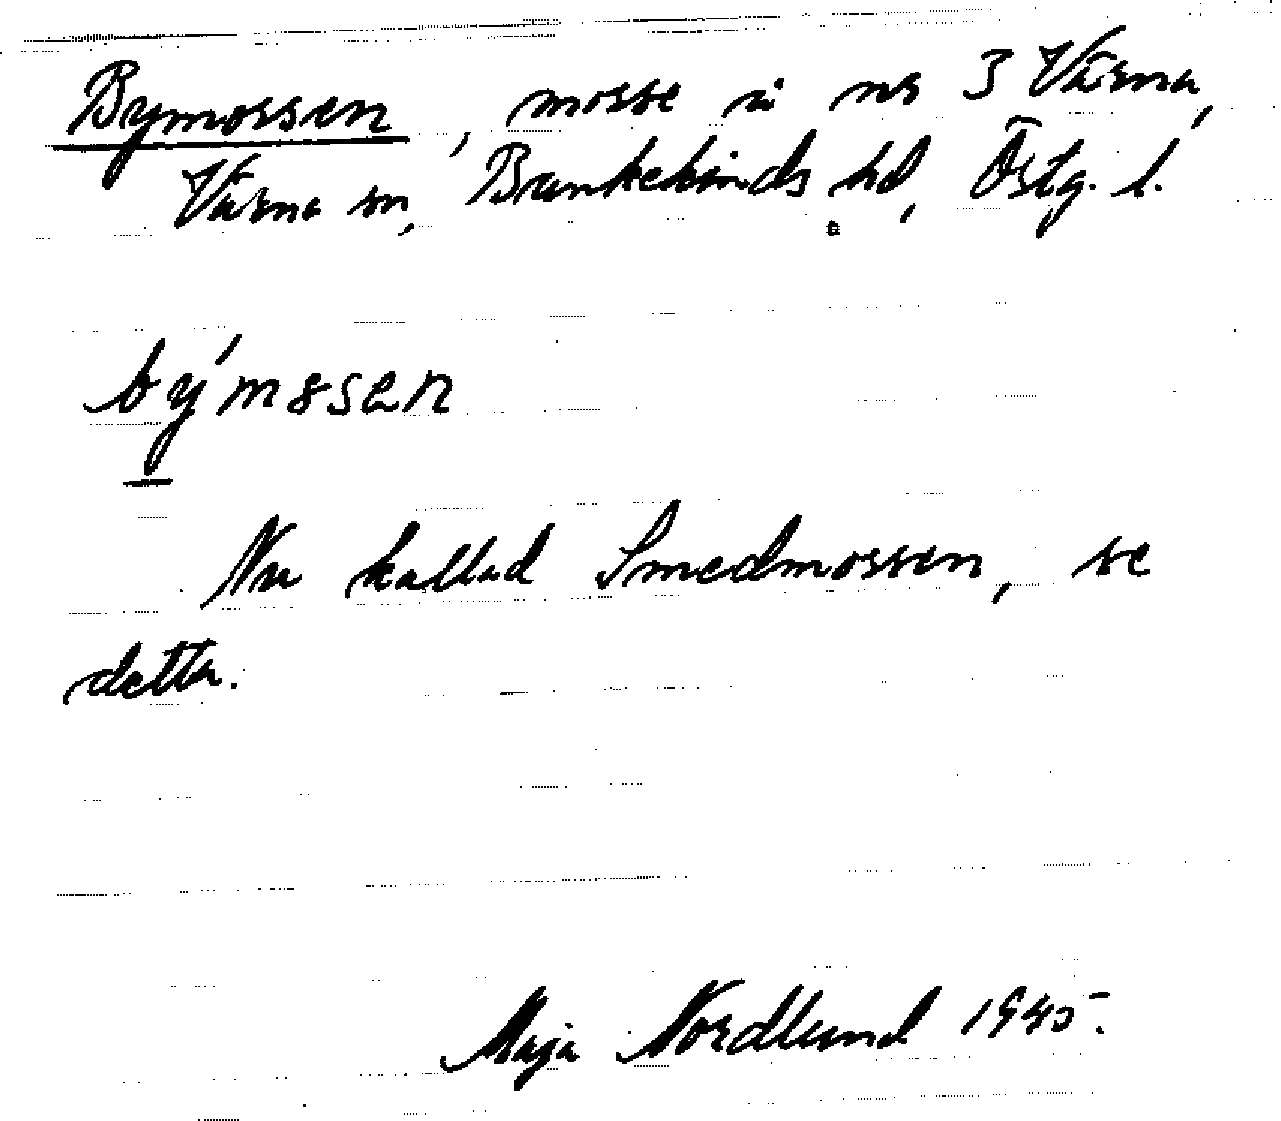 Bymossen, mosse å nr 3 Vårna,
Vårna sn, Bankekinds hd, Östg. l.
býmssen
Nu kallad Smedmossen, se
detta.
Maja Nordlund 1945.